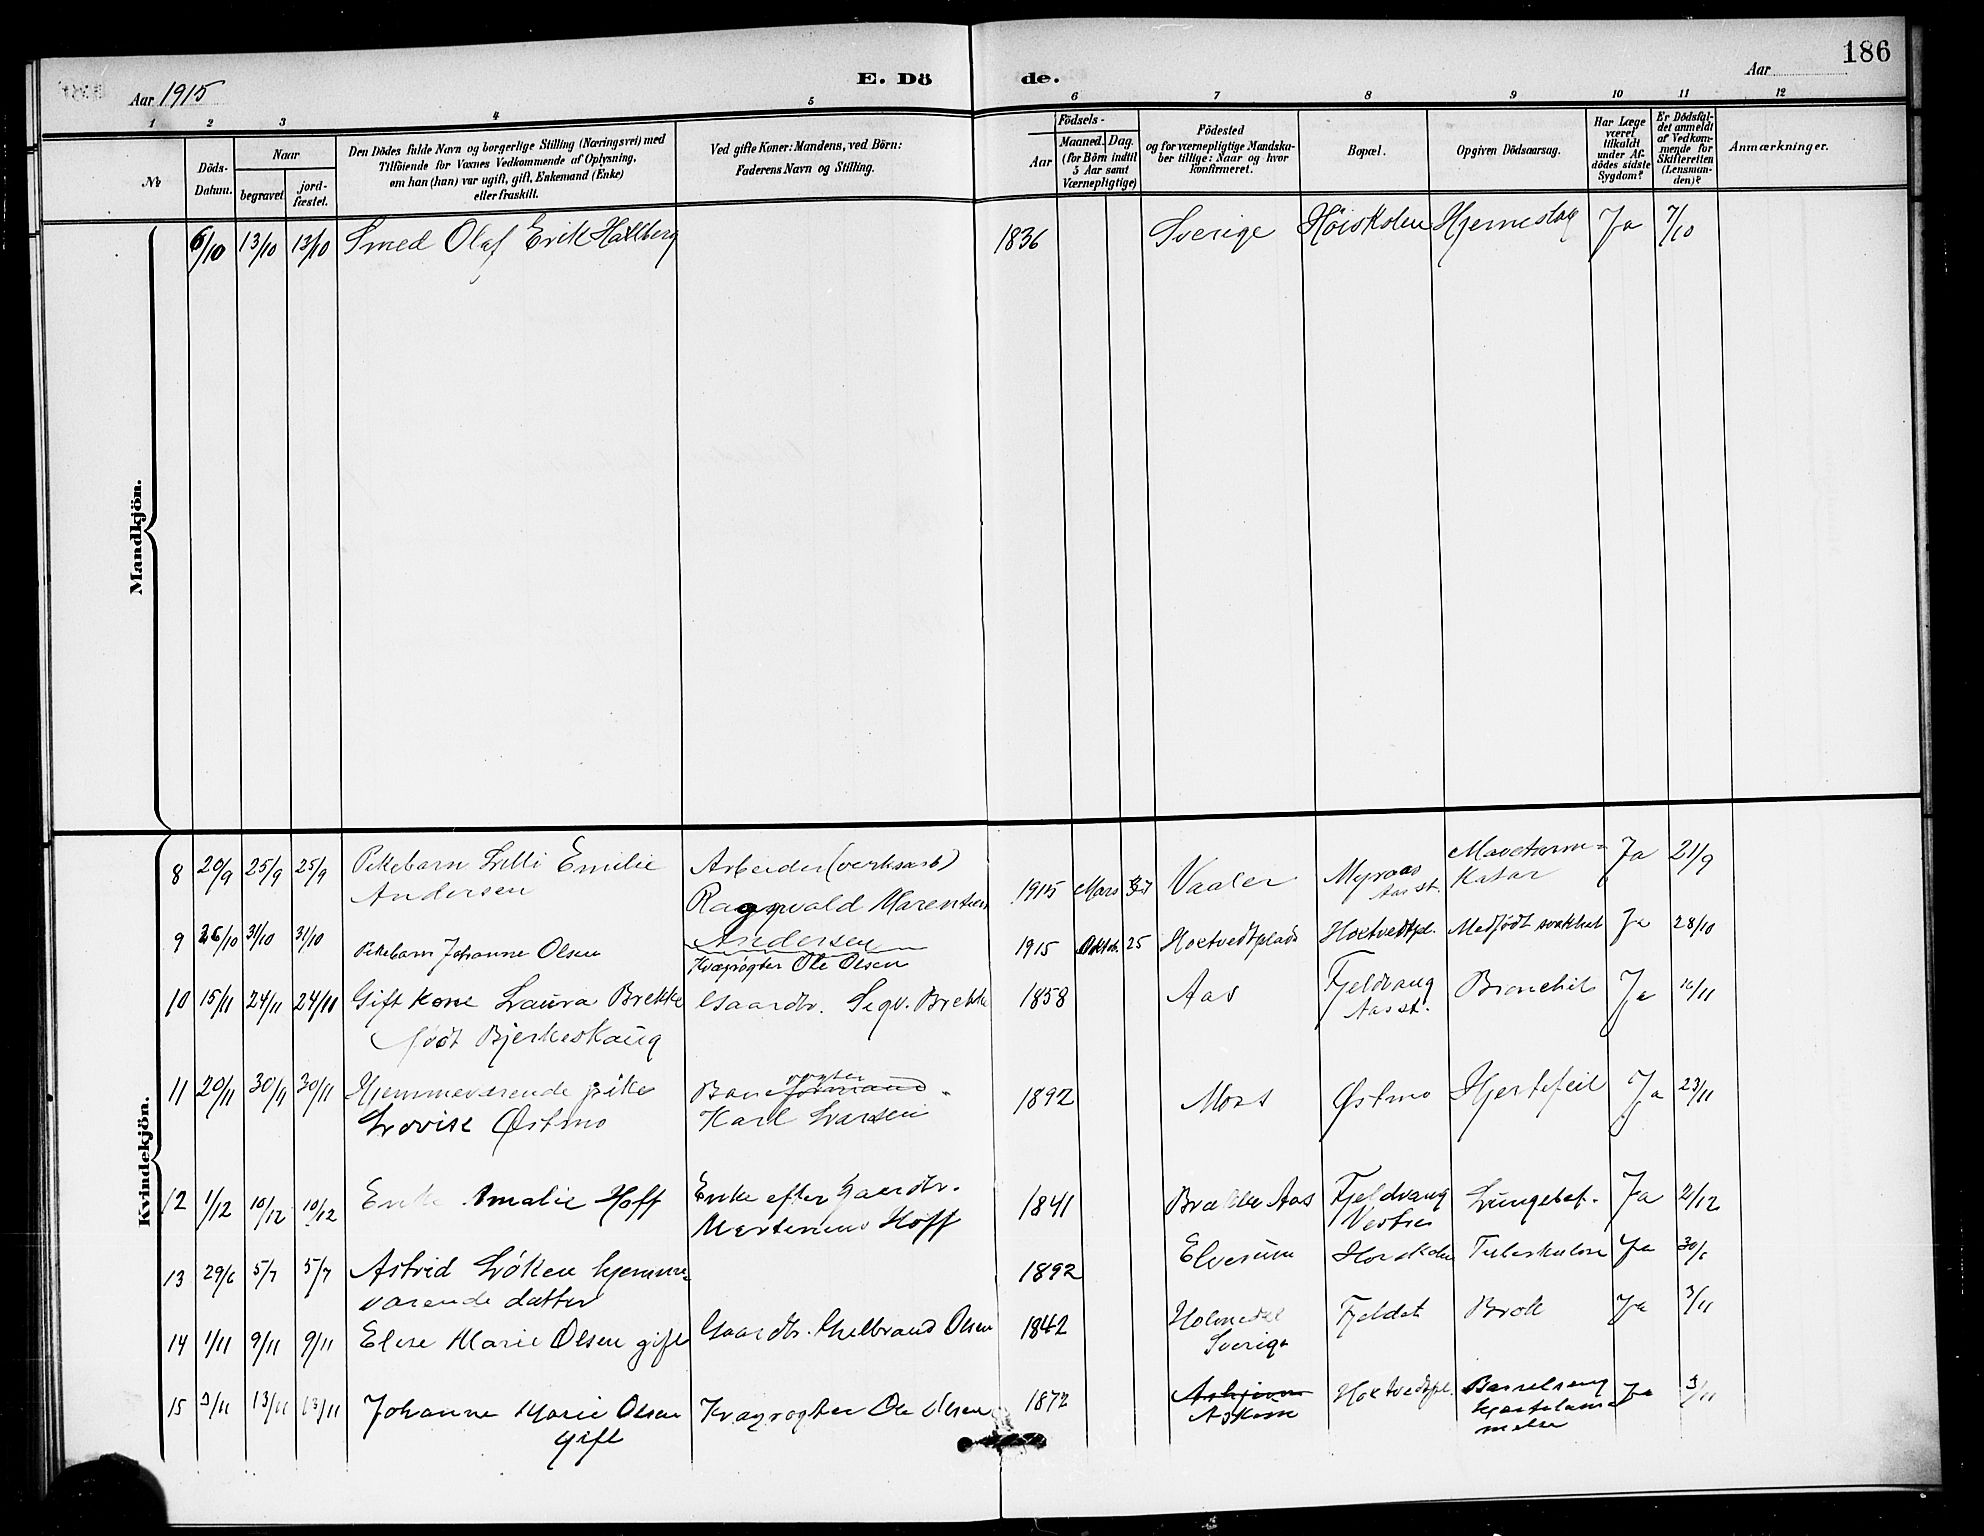 186
Aar 1915
E. Dö
de.
Aar
1 2 3 4 5 6 7 8 9 10 11 12
Nr
Döds-
Datum.
Naar
begravet
jord-
fæstet.
Den Dödes fulde Navn og borgerlige Stilling (Næringsvei) med
Tilföiende for Voxnes Vedkommende af Oplysning,
om han (hun) var ugift, gift, Enkemand (Enke)
eller fraskilt.
Ved gifte Koner: Mandens, ved Börn:
Faderens Navn og Stilling.
Födsels-
Aar
Maaned. Dag.
(for Börn indtil
5 Aar samt
Værnepligtige)
Födested
og for værnepligtige Mandska-
ber tillige: Naar og hvor
konfirmeret.
Bopæl.
Opgiven Dödsaarsag.
Har Læge
været
tilkaldt
under Af-
dödes sidste
Sygdom?
Er Dödsfal-
det anmeldt
af Vedkom-
mende for
Skifteretten
(Lensman-
den)?
Anmærkninger.
Mandkjön.
6/10 13/10 13/10 Smed Olaf Erik Hallberg 1836 Sverige Høiskolen Hjerneslag Ja 7/10
Kvindekjön.
8 20/9 25/9 25/9 Pikebarn Lilli Emilie Arbeider (verksarb) 1915 Mars Vaaler Myraas Mavetarm- Ja 21/9
Andersen Ragnvald Marentius Aas st. Katar
Andersen
9 26/10 31/10 31/10 Pikebarn Johanne Olsen Kvægrøgter Ole Olsen 1915 Oktob. 25 Hoctvedtplads Hoctvedtpl. Medfödt svakhet Ja 28/10
10 15/11 24/11 24/11 Gift kone Laura Brekke Gaardbr. Sigv. Brekke 1858 Aas Fjeldvang Bronchit Ja 16/11
født Bjerkeskaug Aas st.
11 20/11 30/11 30/11 Hjemmeværende pike Banevogter 1892 Moss Østmo Hjertefeil Ja 23/11
Lovise Østmo Karl Larsen
12 1/12 10/12 10/12 Enke Amalie Hoff Enke efter Gaardbr. 1841 Brække Aas Fjeldvang Lungebet. Ja 2/12
Martinius Hoff Vestre
13 29/6 5/7 5/7 Astrid Løken hjemme- 1892 Elverum Høiskolen Tuberkulose Ja 30/6
værende datter
14 1/11 9/11 9/11 Elise Marie Olsen gift Gaardbr. Gulbrand Olsen 1842 Holmedal Fjeldet Brok Ja 3/11
Sverige
15 3/11 13/11 13/11 Johanne Marie Olsen Kvægrøgter Ole Olsen 1872 Askim Hoctvedtpl. Barselseng Ja 3/11
gift